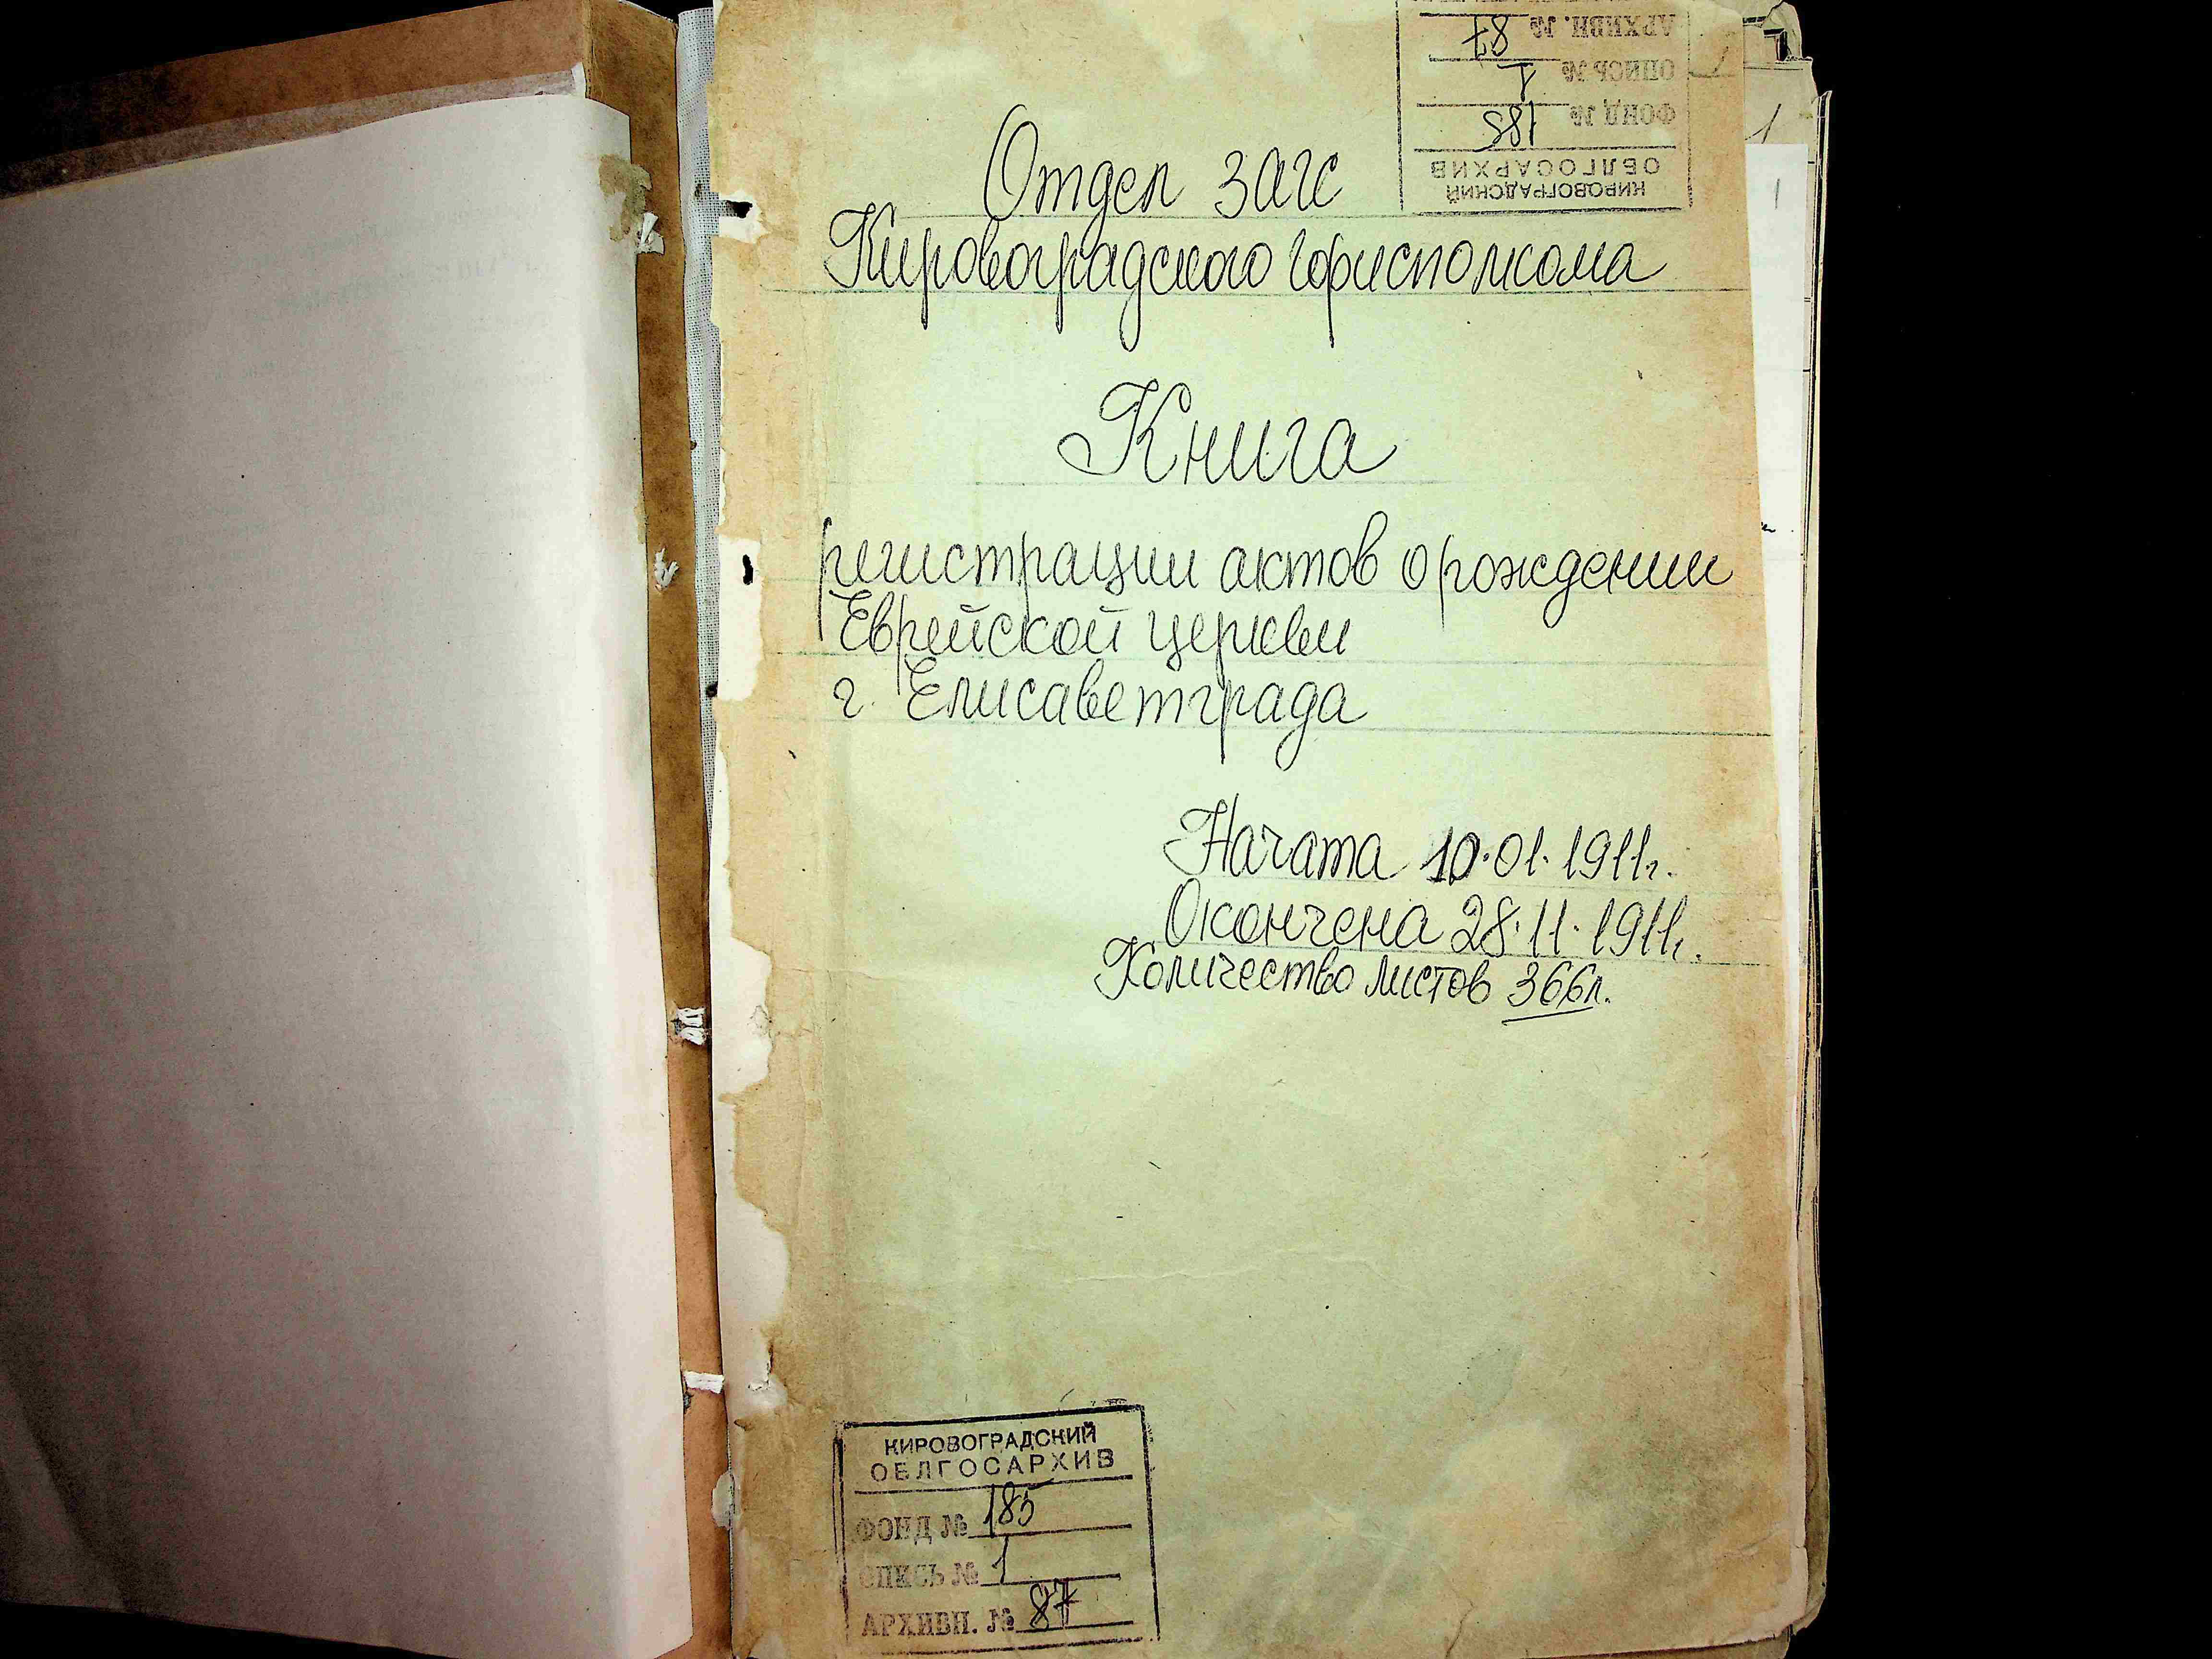 АРХИВН. № 87
ОПИСЬ № 1
ФОНД № 185
ОБЛГОСАРХИВ
КИРОВОГРАДСКИЙ
1
1
Отдел загс
Кировоградского горисполкома
Книга
регистрации актов о рождении
Еврейской церкви
г. Елисаветграда
Начата 10.01.1911г.
Окончена 28.11.1911г.
Количество листов 366л.
КИРОВОГРАДСКИЙ
ОБЛГОСАРХИВ
ФОНД № 185
ОПИСЬ № 1
АРХИВН. № 87